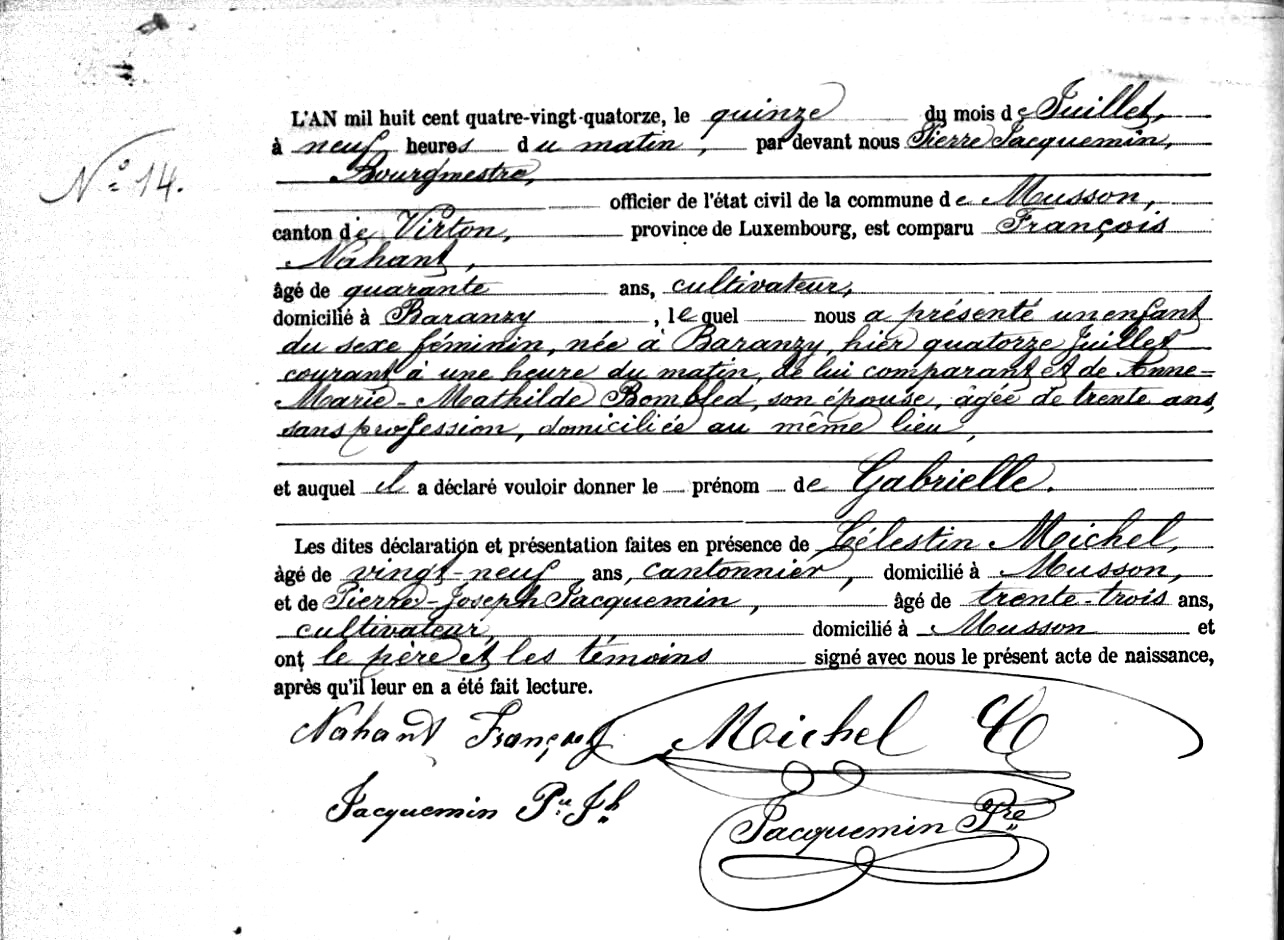 L'AN mil huit cent quatre-vingt-quatorze, le quinze du mois de Juillet,
à neuf heures du matin, par devant nous Pierre Jacquemin,
N° 14.
Bourgmestre,
officier de l'état civil de la commune de Musson,
canton de Virton, province de Luxembourg, est comparu François
Nahant,
âgé de quarante ans, cultivateur,
domicilié à Baranzy, lequel nous a présenté un enfant
du sexe féminin, née à Baranzy, hier quatorze Juillet
courant à une heure du matin, de lui comparant et de Anne-
Marie-Mathilde Bombled, son épouse, âgée de trente ans,
sans profession, domiciliée au même lieu,
et auquel il a déclaré vouloir donner le prénom de Gabrielle.
Les dites déclaration et présentation faites en présence de Célestin Michel,
âgé de vingt-neuf ans, cantonnier, domicilié à Musson,
et de Pierre-Joseph Jacquemin, âgé de trente-trois ans,
cultivateur, domicilié à Musson et
ont le père et les témoins signé avec nous le présent acte de naissance,
après qu'il leur en a été fait lecture.
Nahant François Michel C
Jacquemin Pre Jh Jacquemin Pre